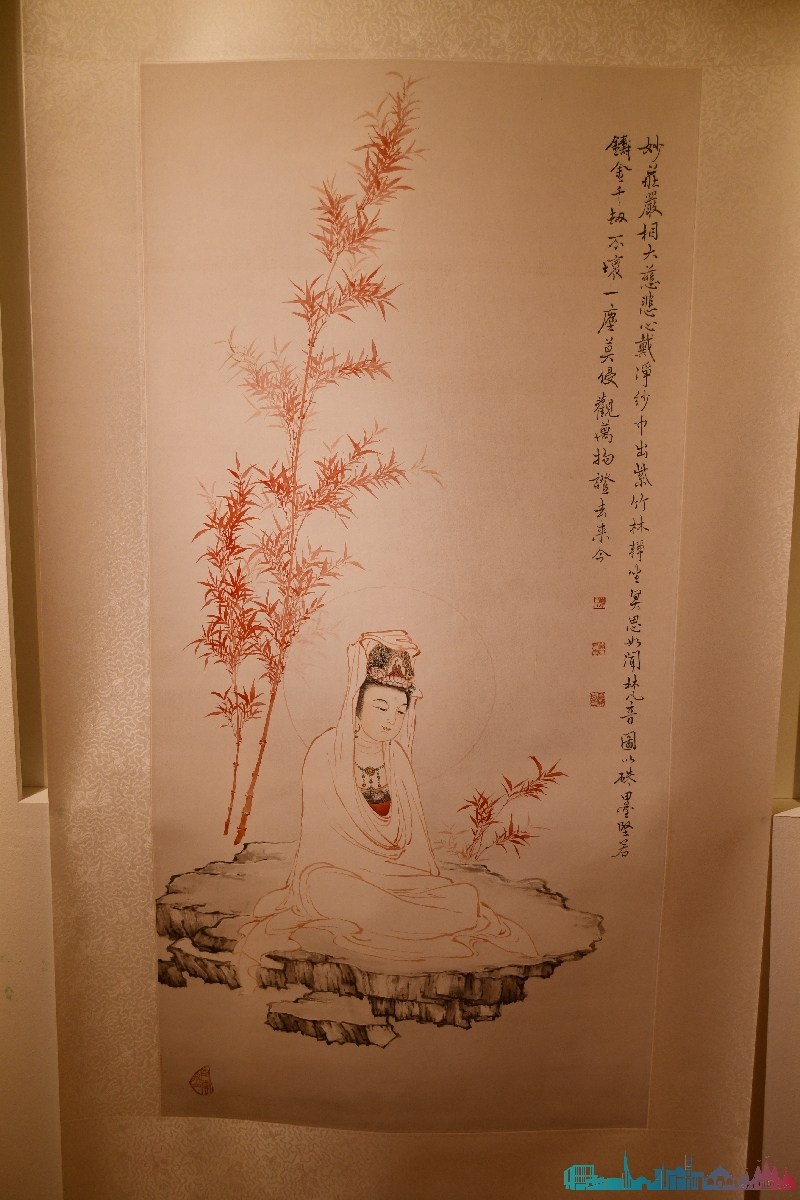 妙莊嚴相大慈悲心戴淨紗巾出紫竹林禪坐冥思如聞林凡音圖以硃墨堅若
鑄金千劫不壞一塵莫侵觀萬物證去来今